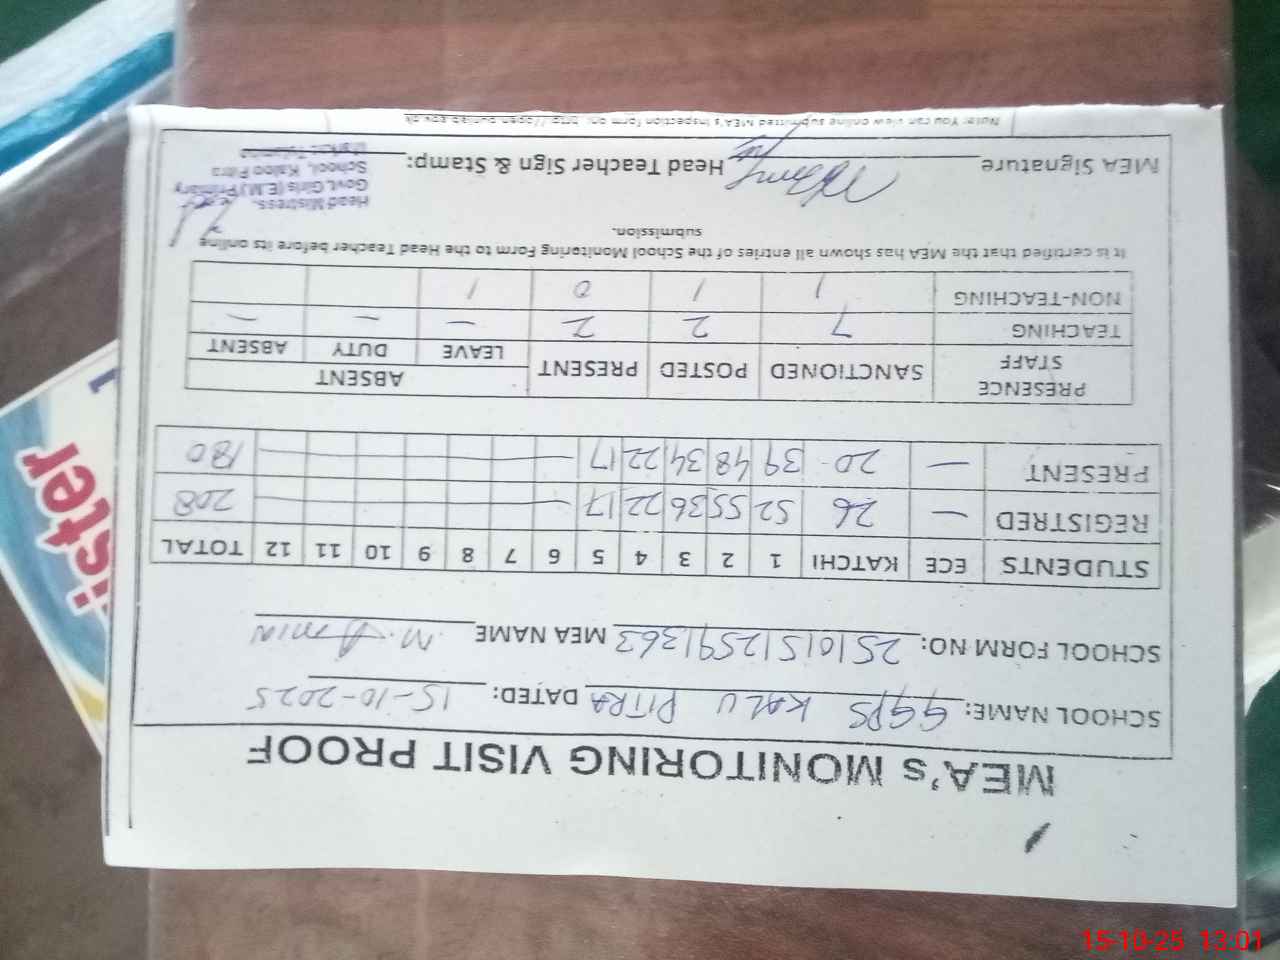 MEA's MONITORING VISIT PROOF
SCHOOL NAME: GGPS KALU PITRA DATED: 15-10-2025
SCHOOL FORM NO: 25101512591363 MEA NAME M. Amin
STUDENTS ECE KATCHI 1 2 3 4 5 6 7 8 9 10 11 12 TOTAL
REGISTRED — 26 52 55 36 22 17 — 208
PRESENT — 20 39 48 34 22 17 — 180
PRESENCE STAFF SANCTIONED POSTED PRESENT ABSENT
LEAVE DUTY ABSENT
TEACHING 7 2 2 — — —
NON-TEACHING 1 1 0 1
It is certified that the MEA has shown all entries of the School Monitoring Form to the Head Teacher before its online
submission.
MEA Signature Head Teacher Sign & Stamp:
Head Mistress.
Govt. Girls (E.M) Primary
School, Kaloo Pitra
Note: You can view online submitted MEA's inspection form on: http://open.punjab.gov.pk
ister
1
15-10-25 13:01